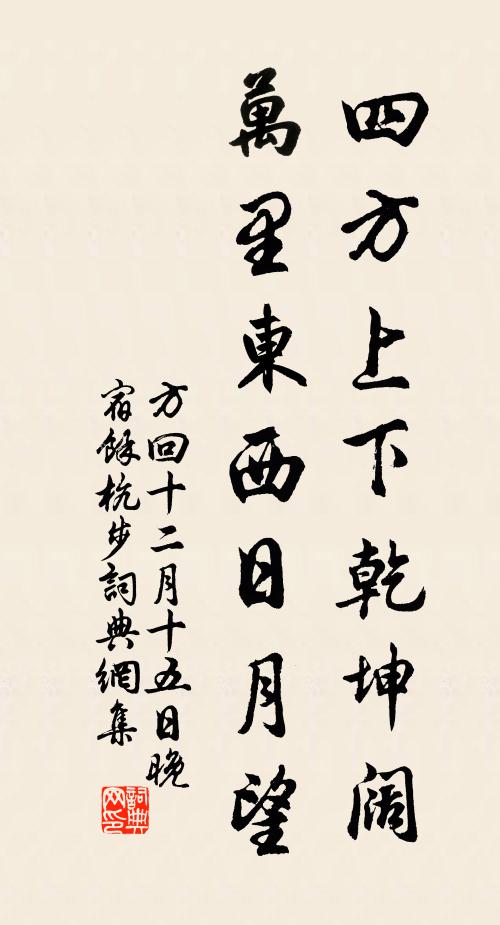 四方上下乾坤闊
萬里東西日月望
方回十二月十五日晚
宿餘杭步詞典網集
詞典
网印